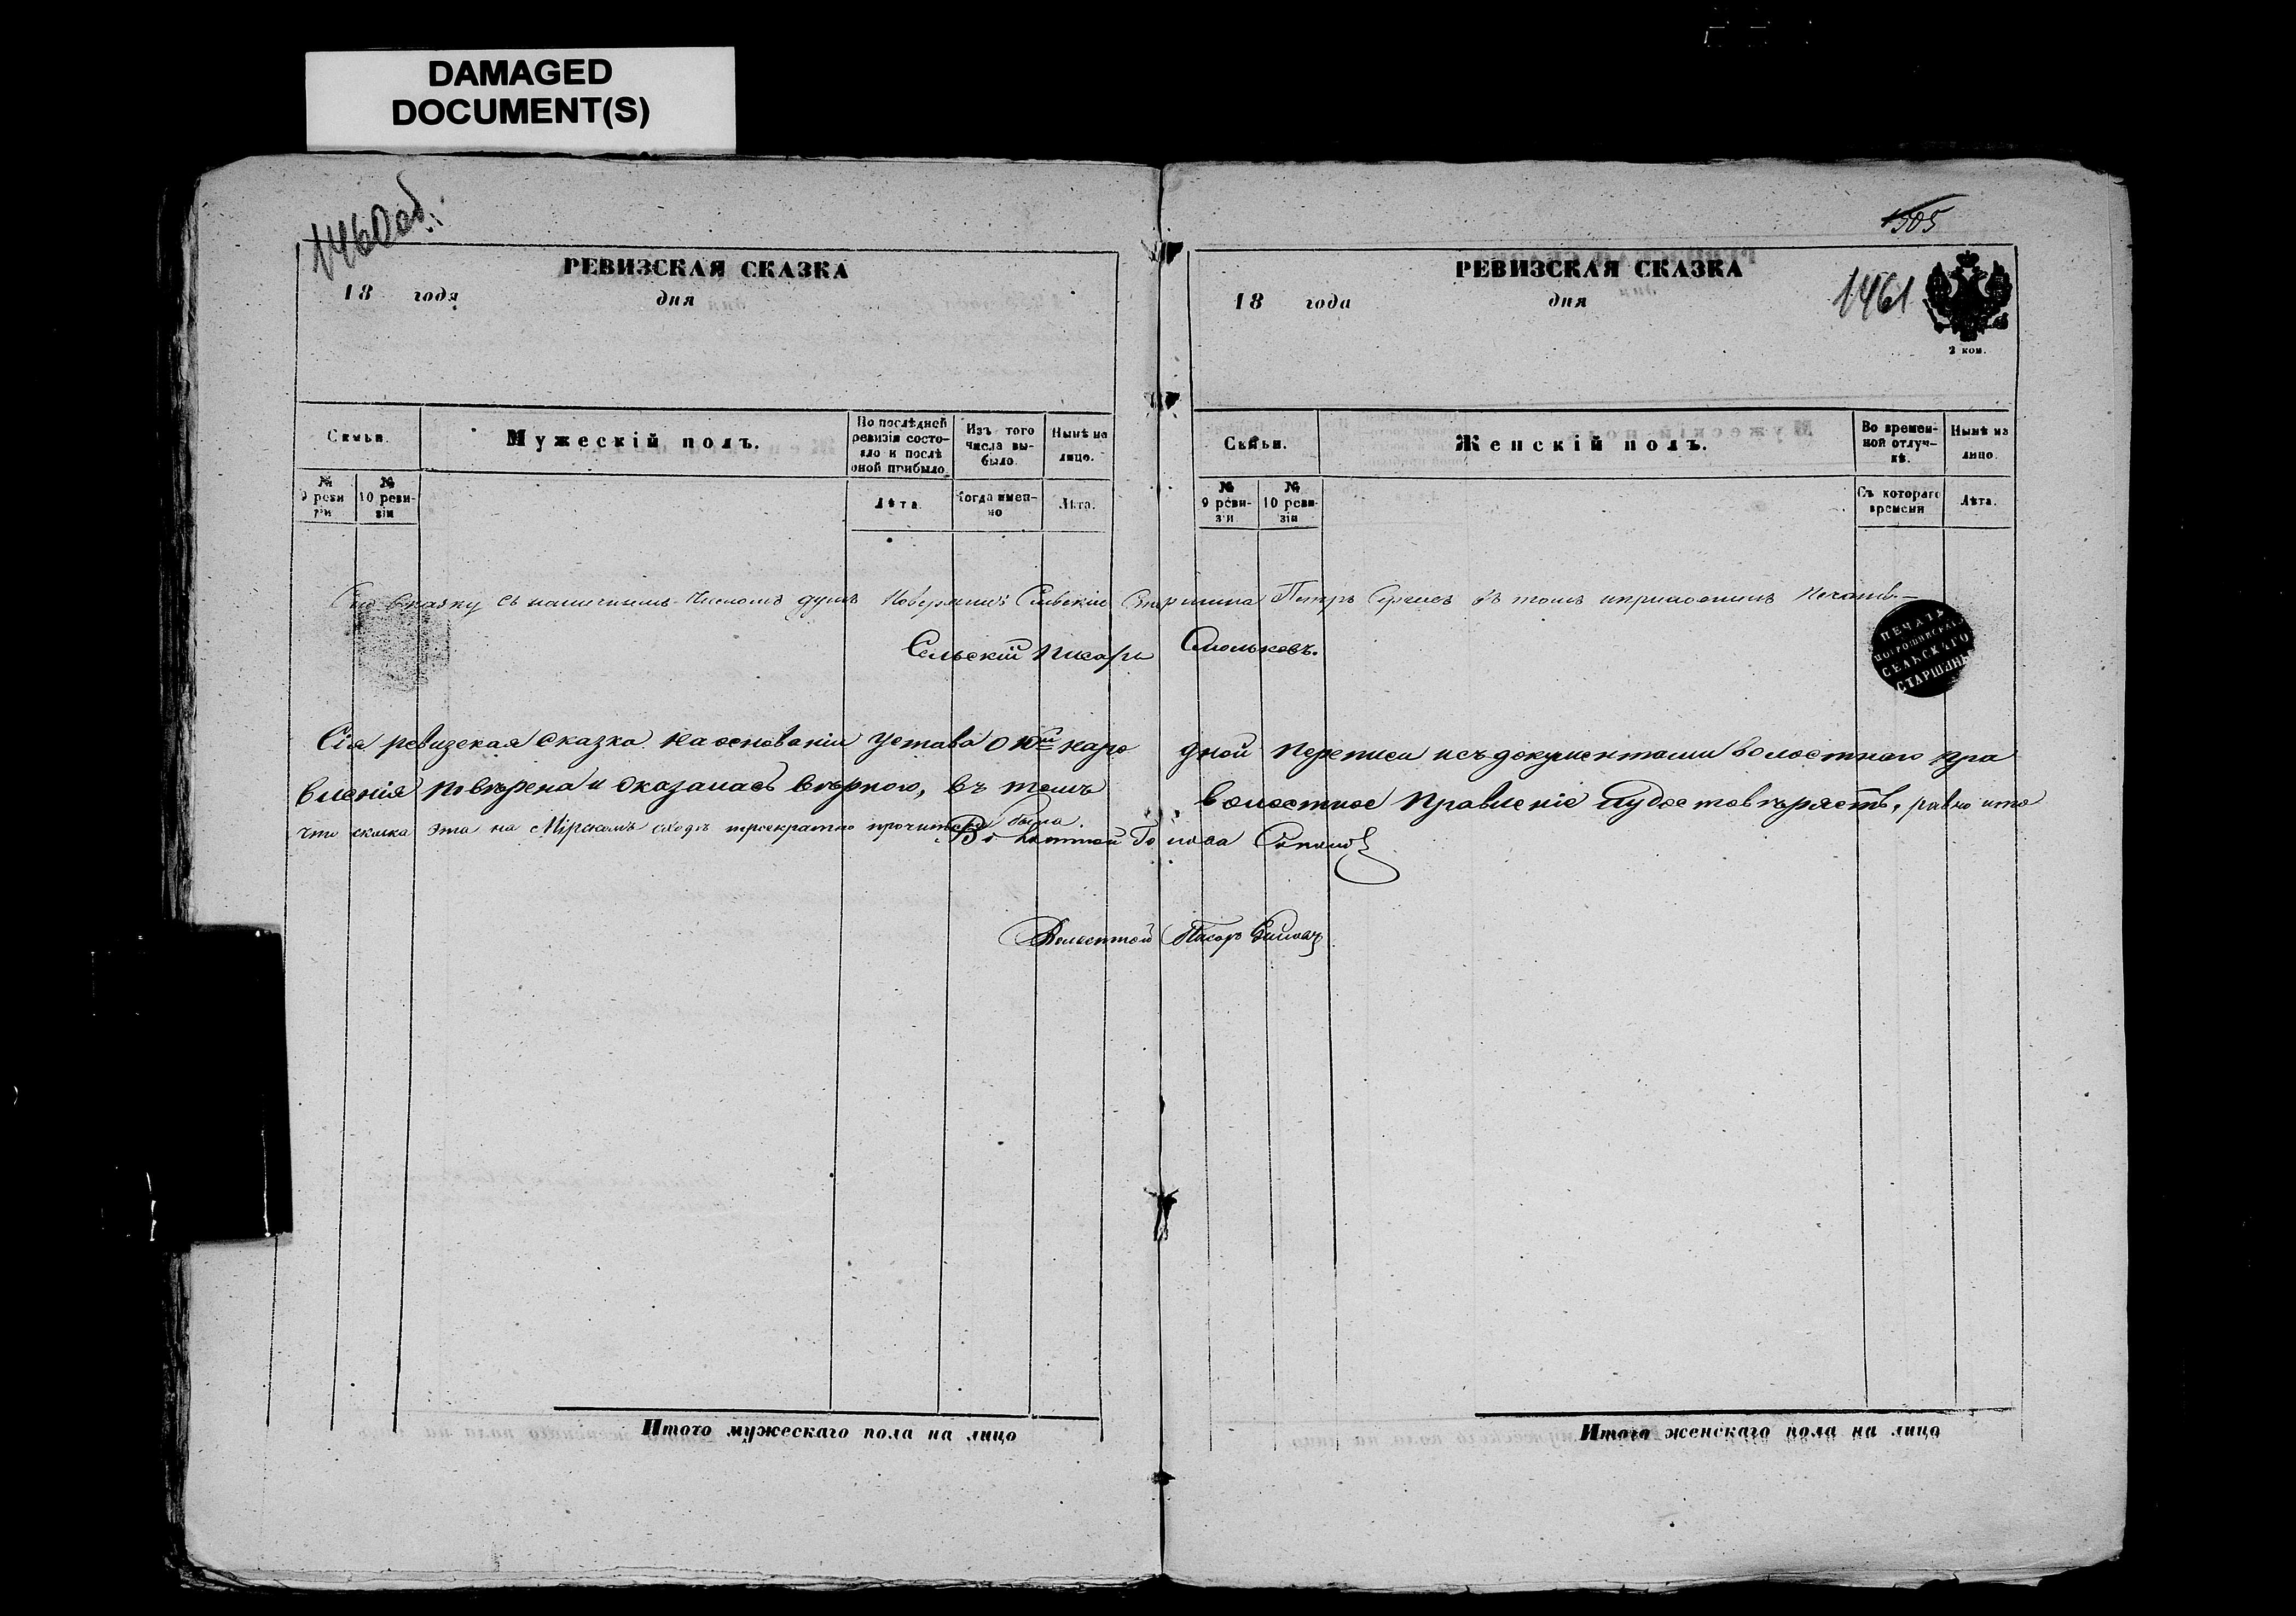 DAMAGED
DOCUMENT(S)
1460 об.
РЕВИЗСКАЯ СКАЗКА
18 года дня
Семьи.
Мужескій полъ.
По послѣдней ревизіи состояло и послѣ оной прибыло.
Изъ того числа выбыло.
Нынѣ на лицо.
№ 9 ревизіи
№ 10 ревизіи
Лѣта.
Когда именно
Лѣта.
1505
1461
РЕВИЗСКАЯ СКАЗКА
18 года дня
2 коп.
Семьи.
Женскій полъ.
Во временной отлучкѣ.
Нынѣ на лицо.
№ 9 ревизіи
№ 10 ревизіи
Съ котораго времени
Лѣта.
Сію сказку съ наличнымъ числомъ душъ повѣрялъ Сельскій Старшина Петръ въ томъ и приложилъ печать
Сельскій Писарь Смольковъ.
ПЕЧАТЬ
СЕЛЬСКАГО
СТАРШИНЫ
Сія ревизская сказка на основаніи устава о 10й народной переписи и съ документами волостнаго пра
вленія повѣрена и оказалась вѣрною, въ томъ волостное правленіе и удостовѣряетъ, равно и то
что сказка эта на Мірскомъ сходѣ троекратно прочитана была.
Волостной Голова
Волостной Писарь
Итого мужескаго пола на лицо
Итого женскаго пола на лицо